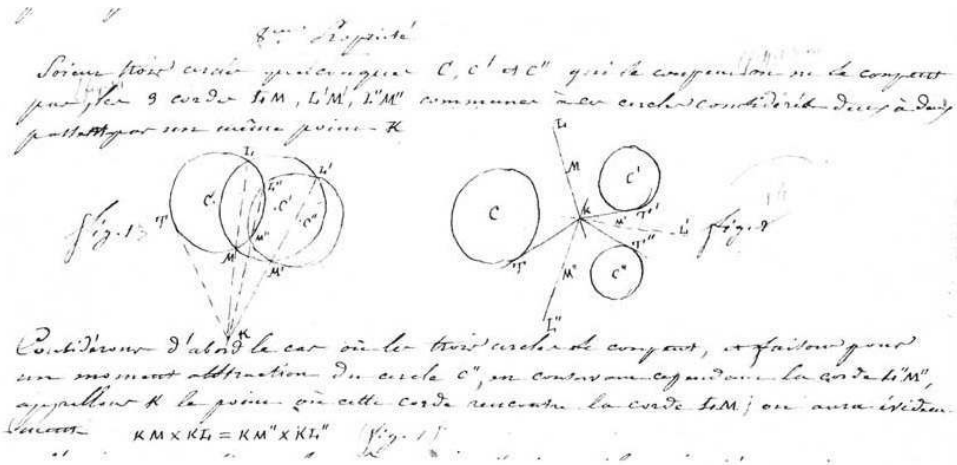 8ème Propriété
Soient trois cercles quelconques C, C' et C" qui se coupent ou ne se coupent
pas, les 3 cordes LM, L'M', L"M" communes à ces cercles considérés deux à deux
passent par un même point K
L L' L" C C' C" T M" M M' K
fig. 1
L M C C' K M' T' L' T" T M" C" L"
fig. 2
Considérons d'abord le cas où les trois cercles se coupent, et faisons pour
un moment abstraction du cercle C", en conservant cependant la corde L"M",
appellons K le point où cette corde rencontre la corde LM; on aura évidem
ment KM x KL = KM" x KL" (fig. 1)